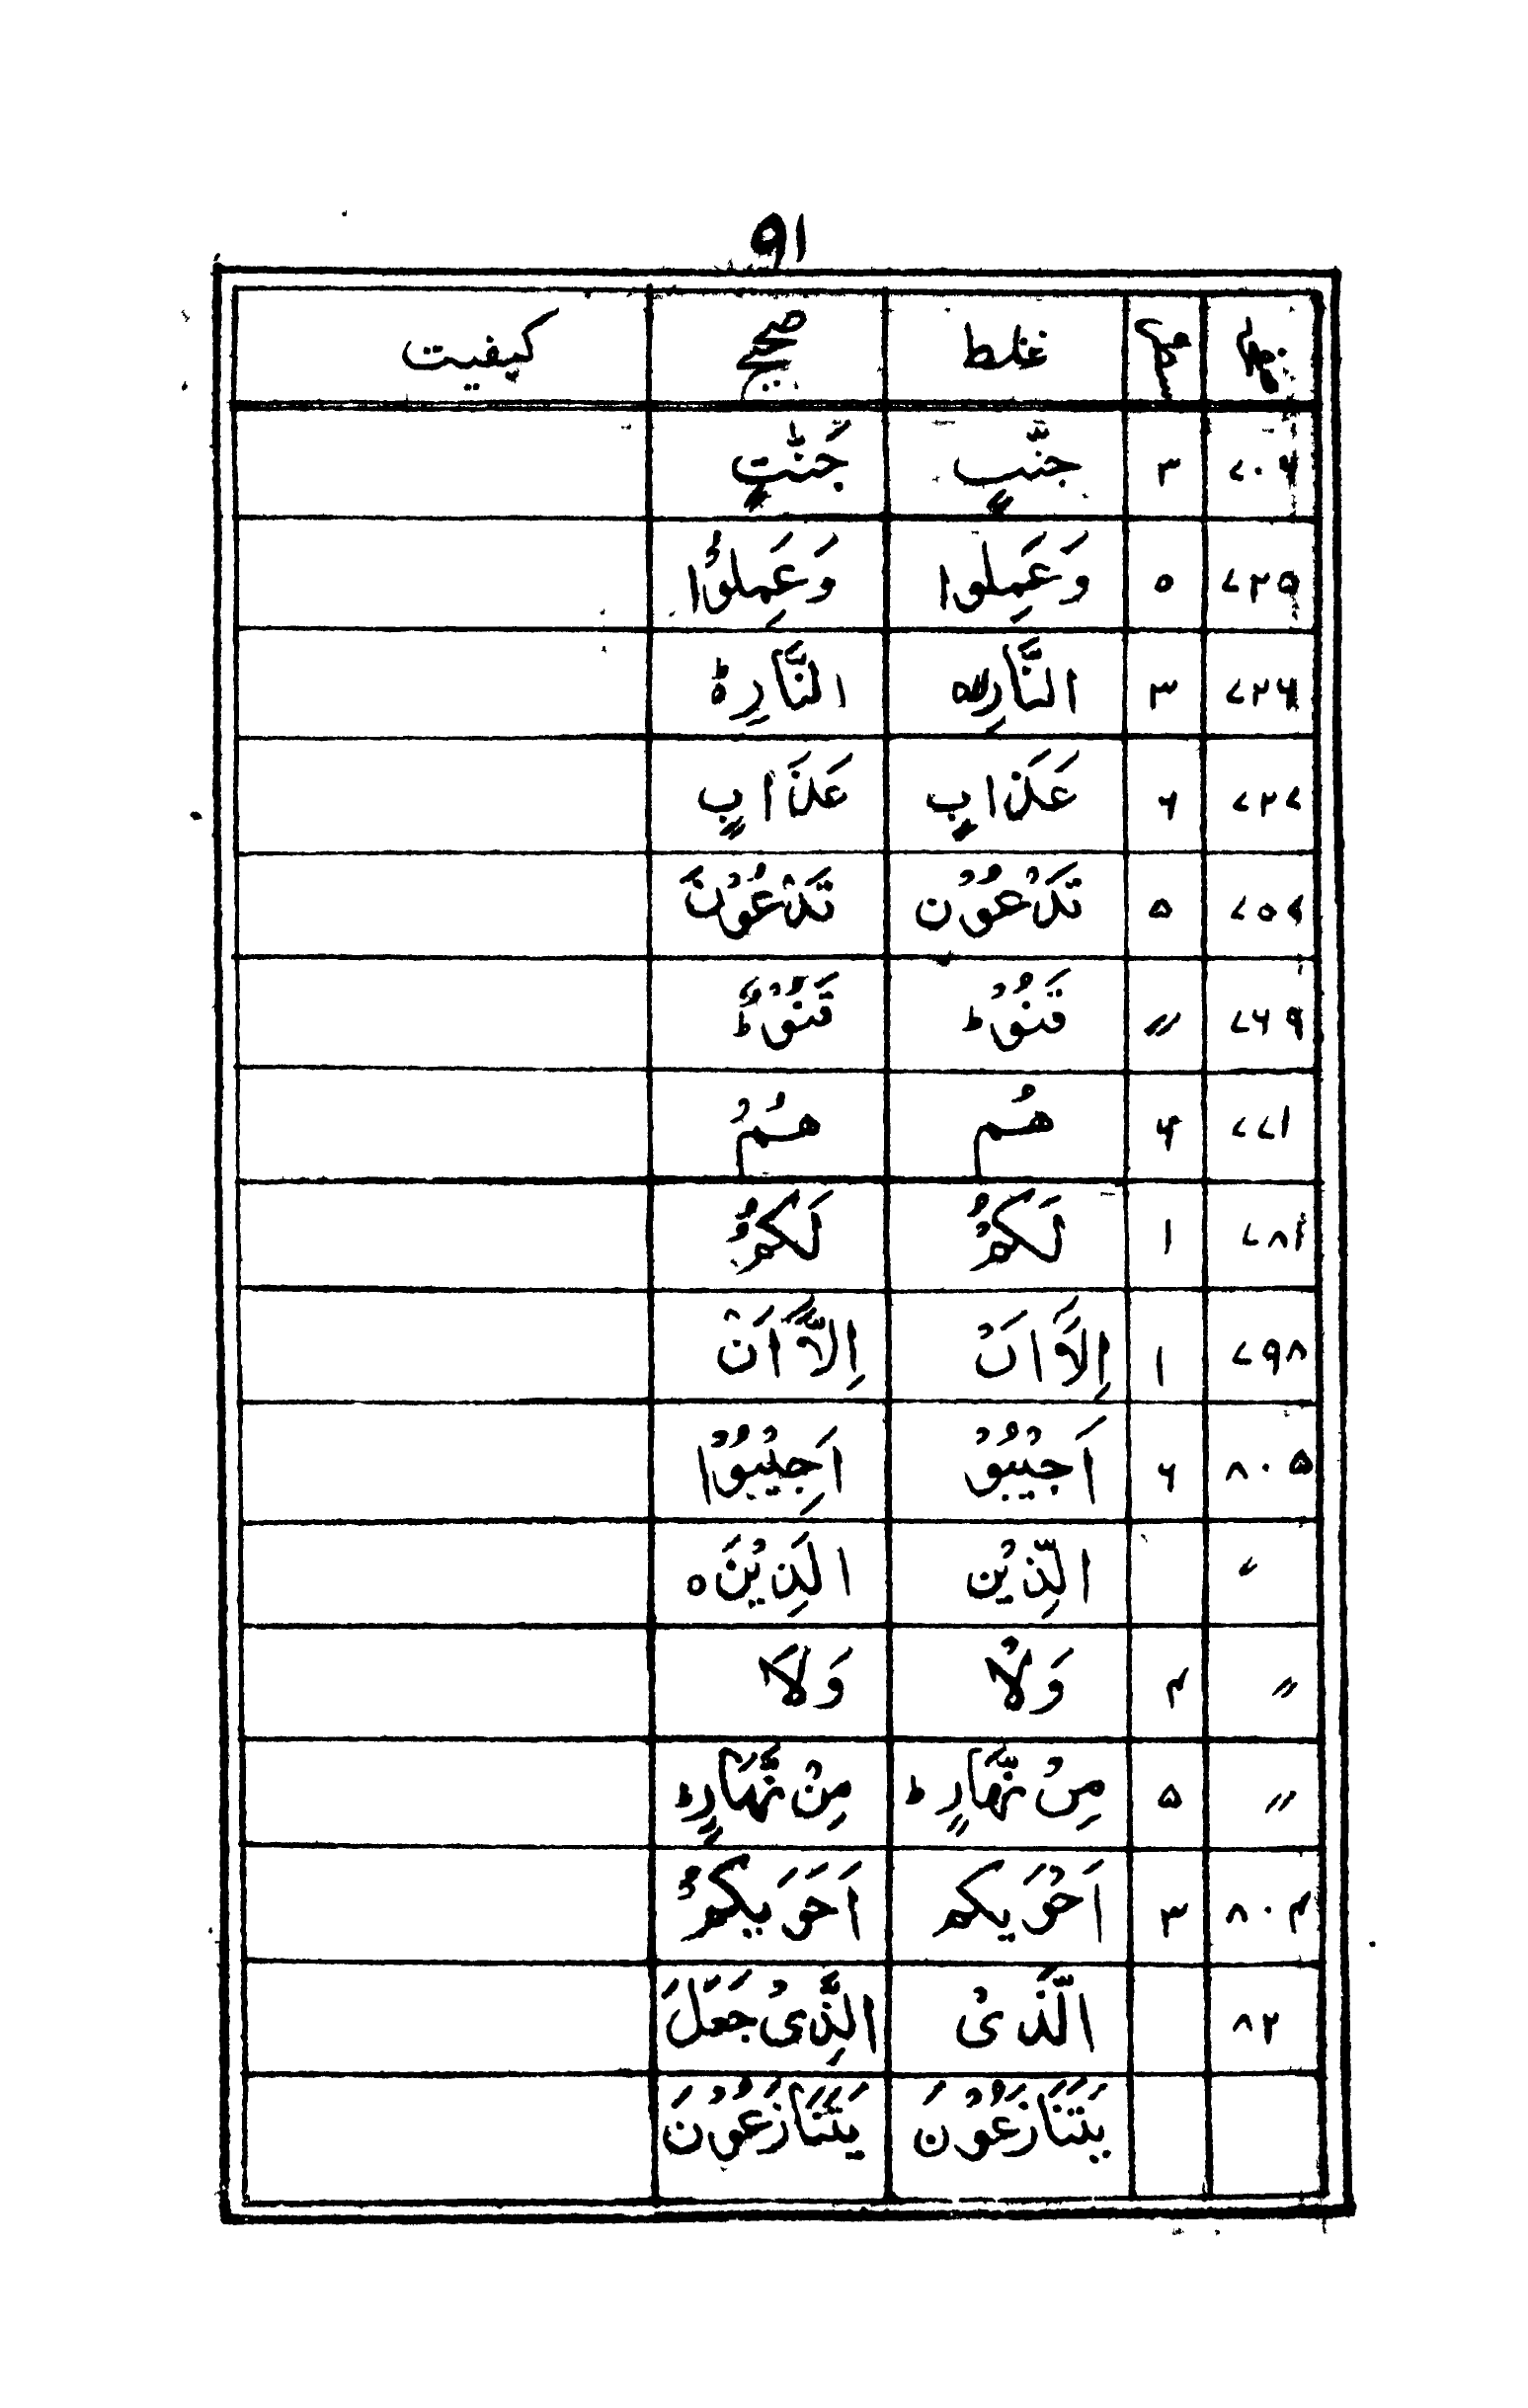 ۹۱
صفحہ سطر غلط صحیح کیفیت
۷۰۶ ۳ جنّبٍ جَنّٰتٍ
۷۲۵ ۵ وَعَمِلوا وَعَمِلوُا
۷۲۶ ۳ النَّارِ النَّارِ ۃ
۷۲۷ ۶ عَذَابٍ عَذَابٍ
۷۵۷ ۵ تَدْعُوْن تَدْعُوْنَ
۷۶۹ // قَنُوْ ط قَنُوْطٌ
۷۷۱ ۶ هُم هُمْ
۷۸۱ ۱ لَكُمْ لَكُمْ
۷۹۸ ۱ اِلَّا اَنْ اِلَّآ اَنْ
۸۰۵ ۶ اَجيْبُوْ اَجِيْبُوْا
// الّذِيْن الَذِيْنَ ه
// ۴ وَلْا وَلَا
// ۵ مِنْ نَّهَارٍ ط مِنْ نَّهَارٍ ط
۸۰۴ ۳ اَخْوَيكم اَخَوَيكُمْ
۸۲ الَّذىْ الَّذِىْ جَعَلَ
يَتَنَازَعُوْنَ يَتَنَازَعُوْنَ